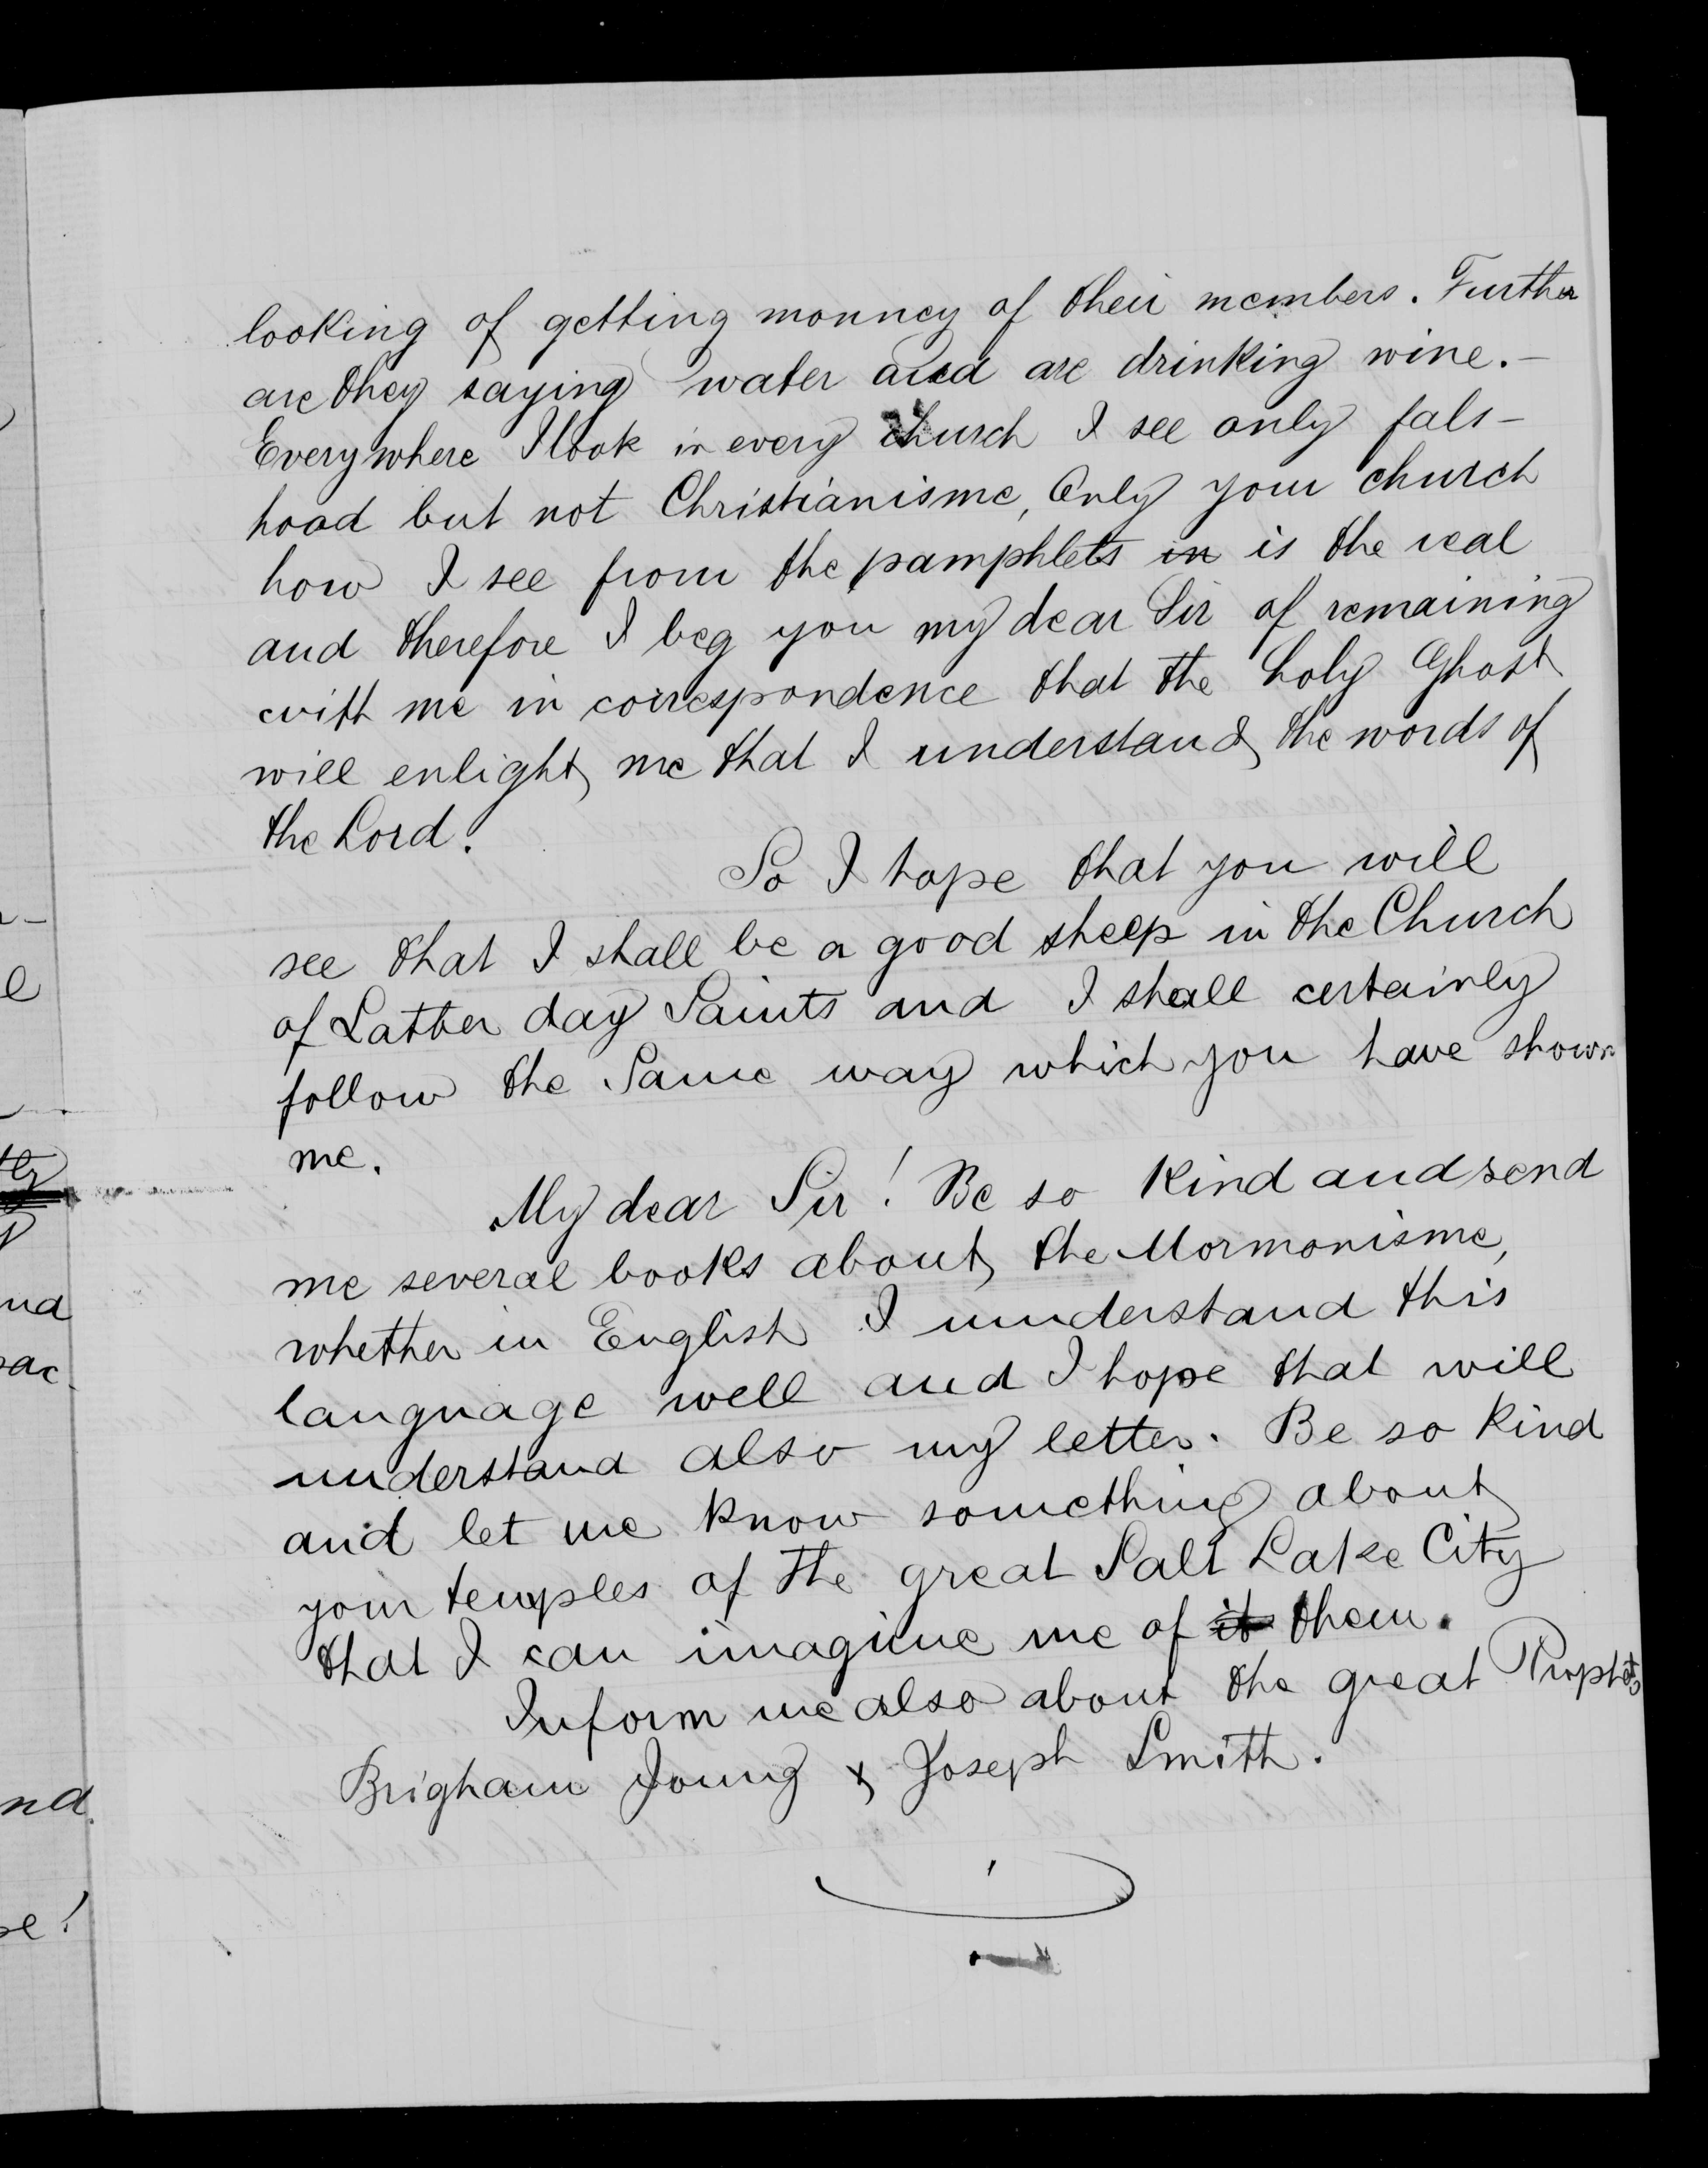 looking of getting monney of their members. Further
are they saying water and are drinking wine.-
Everywhere I look in every church I see only fals-
hood but not Christianisme, Only your church
how I see from the pamphlets in is the real
and therefore I beg you my dear Sir of remaining
with me in correspondence that the holy Ghost
will enlight me that I understand the words of
the Lord.
So I hope that you will
see that I shall be a good sheep in the Church
of Latter day Saints and I shall certainly
follow the Same way which you have shown
me.
My dear Sir! Be so kind and send
me several books about the Mormonisme,
whether in English I understand this
language well and I hope that will
understand also my letter. Be so kind
and let me know something about
your temples of the great Salt Lake City
that I can imagine me of it them.
Inform me also about the great Prophets
Brigham Joung & Joseph Smith.